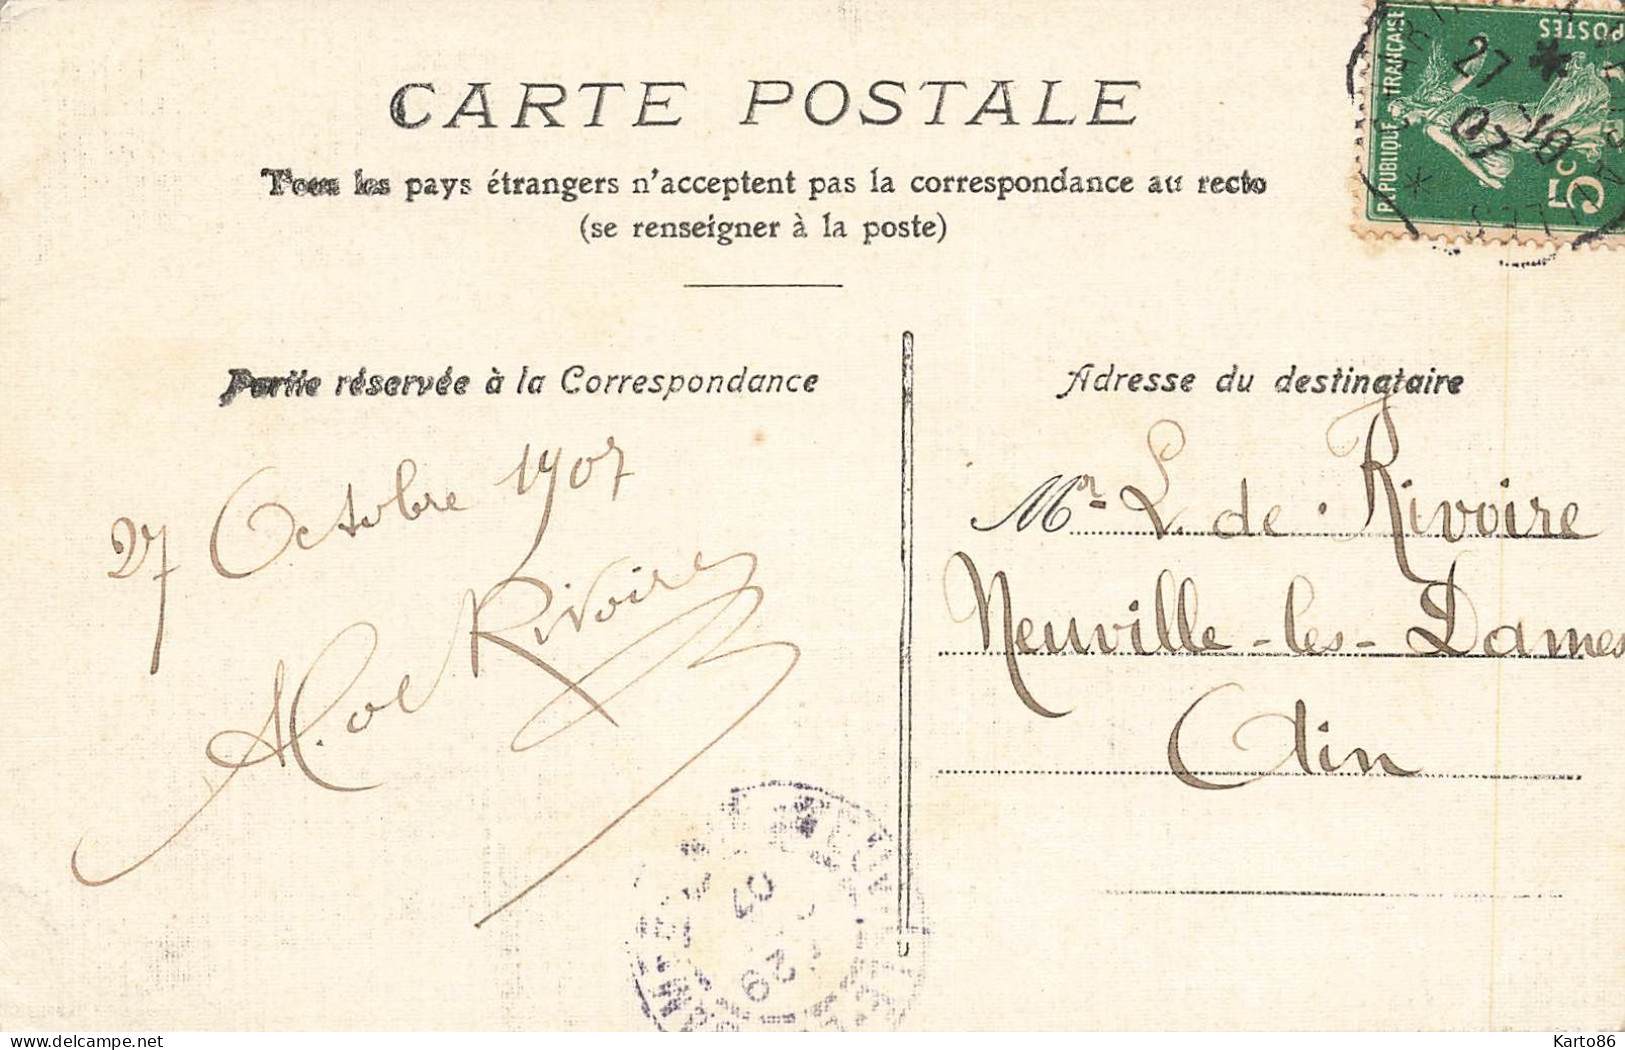 CARTE POSTALE
Tous les pays étrangers n'acceptent pas la correspondance au recto
(se renseigner à la poste)
RÉPUBLIQUE FRANÇAISE
POSTES
5c
27 * 10
07
Partie réservée à la Correspondance
27 Octobre 1907
de Rivoire
Adresse du destinataire
Mr L. de Rivoire
Neuville-les-Dames
Ain
29
07
www.delcampe.net
Karto86